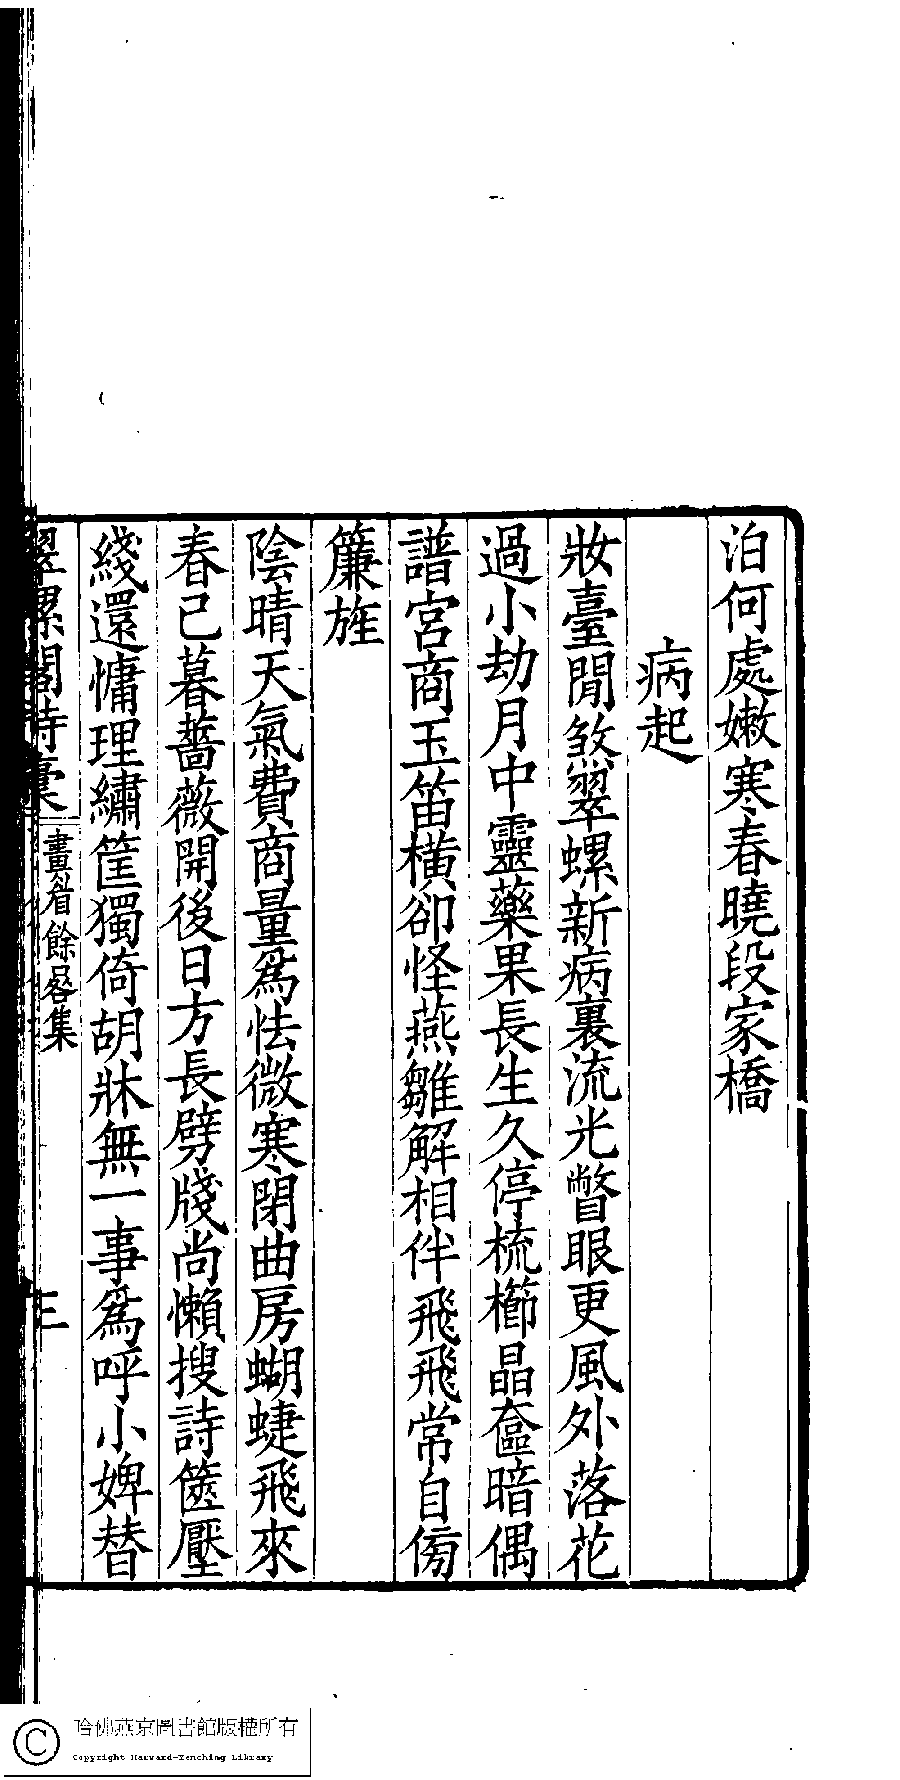 泊何處嫩寒春曉段家橋
病起
妝臺閒煞翠螺新病裏流光瞥眼更風外落花
過小劫月中靈藥果長生久停梳櫛晶奩暗偶
譜宮商玉笛橫卻怪燕雛解相伴飛飛常自傍
簾旌
陰晴天氣費商量爲怯微寒閉曲房蝴蜨飛來
春已暮薔薇開後日方長劈牋尚懶搜詩篋壓
綫還慵理繡筐獨倚胡牀無一事爲呼小婢替
翠螺閣詩稾
畫眉餘晷集
三
哈佛燕京圖書館版權所有
Copyright Harvard-Yenching Library